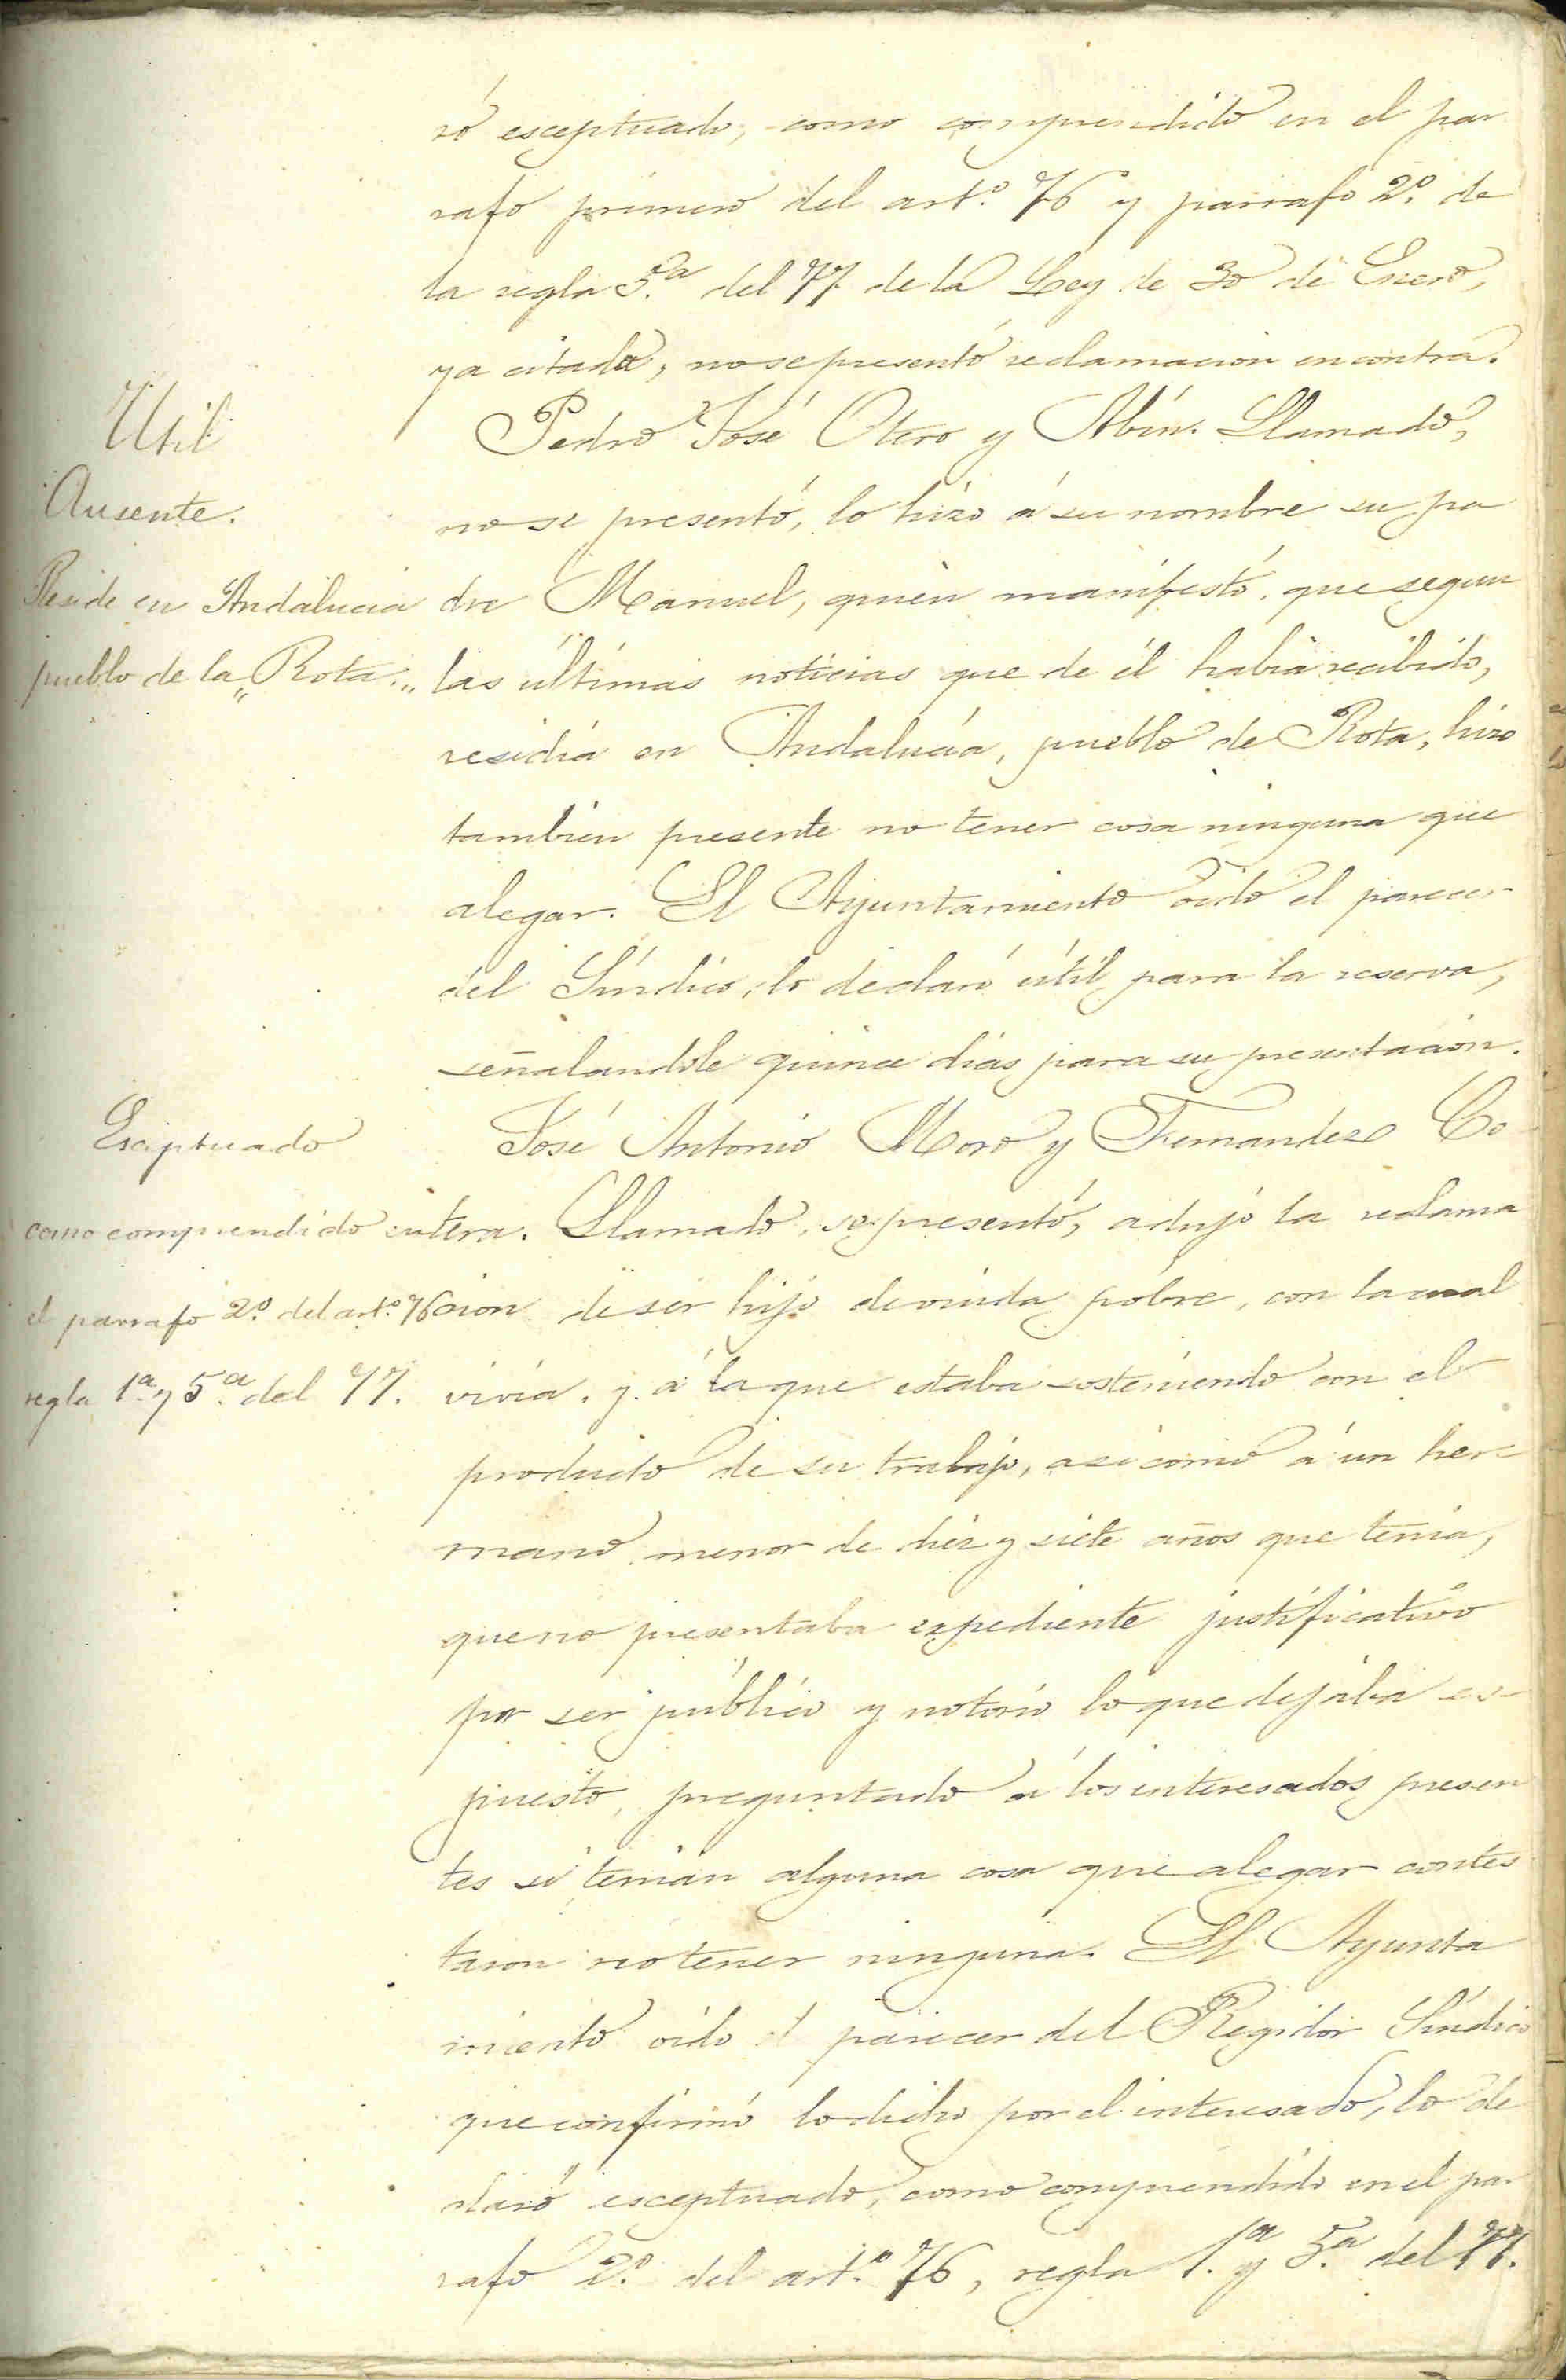 ró esceptuado, como comprendido en el par
rafo primero del art.º 76 y parrafo 2º. de
la regla 5.ª del 77 de la Ley de 30 de Enero,
ya citada, no se presentó reclamacion en contra.
Util
Ausente.
Reside en Andalucia
pueblo de la "Rota."
Pedro José Otero y Abin. Llamado,
no se presentó, lo hizo á su nombre su pa
dre Manuel, quien manifestó, que segun
las últimas noticias que de él habia recibido,
residia en Andalucia, pueblo de Rota, hizo
tambien presente no tener cosa ninguna que
alegar. El Ayuntamiento oido el parecer
del Síndico, lo declaró útil para la reserva,
señalandole quince dias para su presentacion.
Esceptuado
como comprendido en
el parrafo 2º. del art.º 76
regla 1ª. y 5.ª del 77.
José Antonio Moro y Fernandez Co
tera. Llamado, se presentó, adujo la reclama
cion de ser hijo de viuda pobre, con la cual
vivia. y. á la que estaba sosteniendo con el
producto de su trabajo, asi como á un her-
mano menor de diez y siete años que tenia,
que no presentaba expediente justificativo
por ser público y notorio lo que dejaba es-
puesto, preguntado á los interesados presen
tes si tenian alguna cosa que alegar contes
taron no tener ninguna. El Ayunta
miento oido el parecer del Regidor Síndico
que confirmó lo dicho por el interesado, lo de
claró esceptuado, como comprendido en el par
rafo 2º. del art.º 76, regla 1.ª y 5.ª del 77.